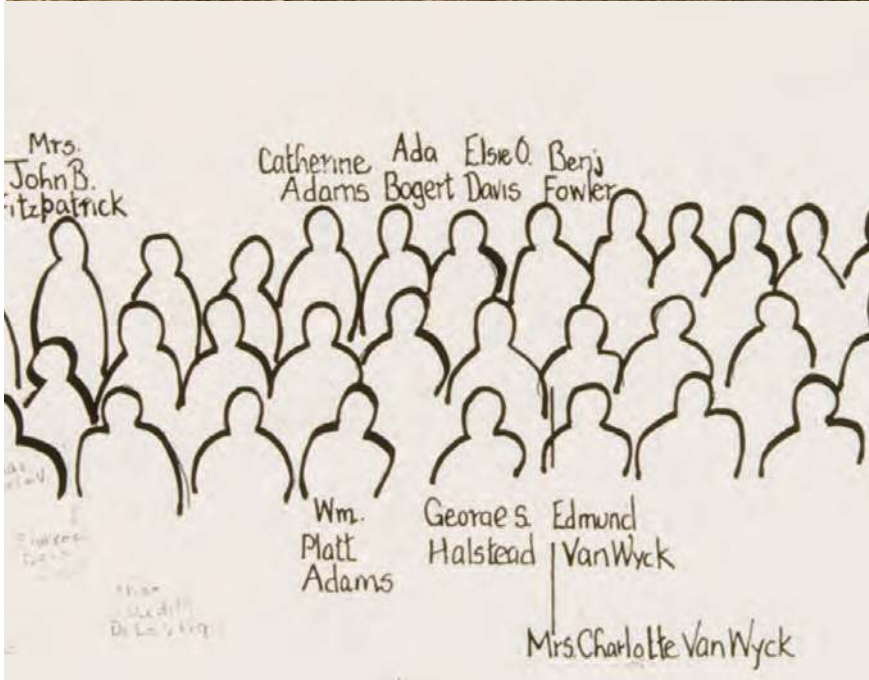 Mrs.
John B.
itzpatrick
Catherine
Adams
Ada
Bogert
Elsie O.
Davis
Benj
Fowler
Wm.
Platt
Adams
George S.
Halstead
Edmund
VanWyck
Mrs. Charlotte VanWyck